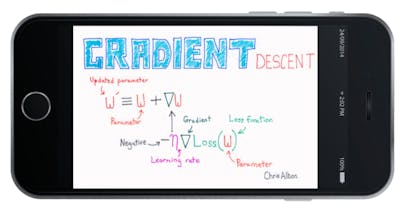 GRADIENT DESCENT
Updated parameter
W′ ≡ W + ∇W
Parameter
Gradient
Loss function
Negative
−η∇Loss(W)
Learning rate
Parameter
Chris Albon
24/09/2014
2:52 PM
100%